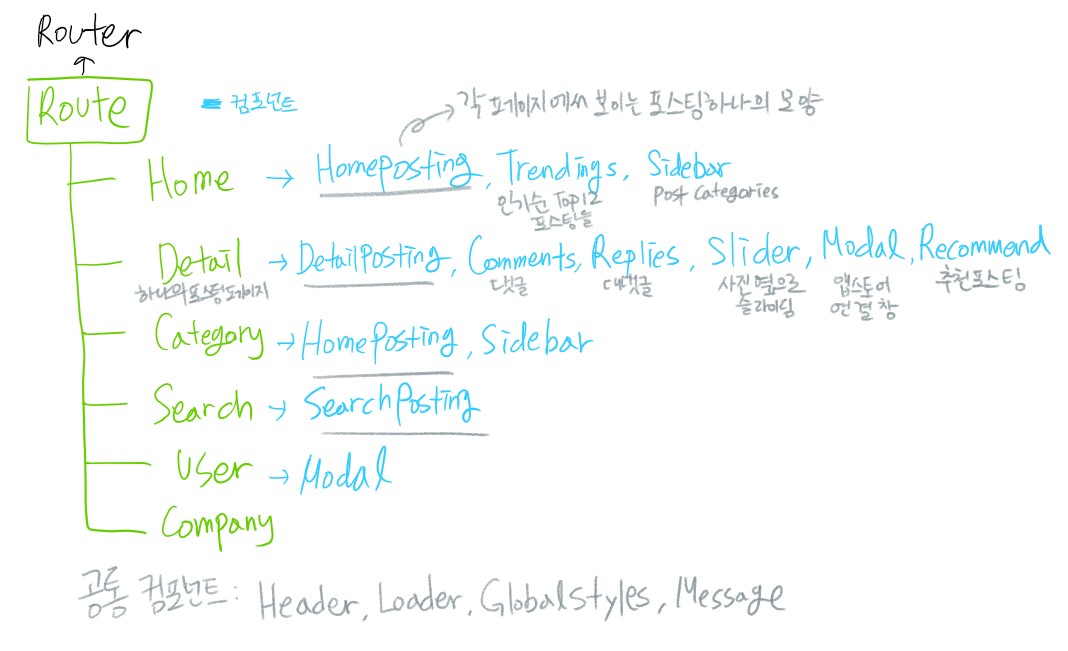 Router
Route
컴포넌트
각 페이지에서 보이는 포스팅하나의 모양
Home → HomePosting, Trendings, Sidebar
인기순 Top12 포스팅들
Post Categories
Detail → DetailPosting, Comments, Replies, Slider, Modal, Recommend
하나의 포스팅 페이지
댓글
대댓글
사진 옆으로 슬라이딩
앱스토어 연결창
추천포스팅
Category → HomePosting, Sidebar
Search → SearchPosting
User → Modal
Company
공통 컴포넌트: Header, Loader, GlobalStyles, Message